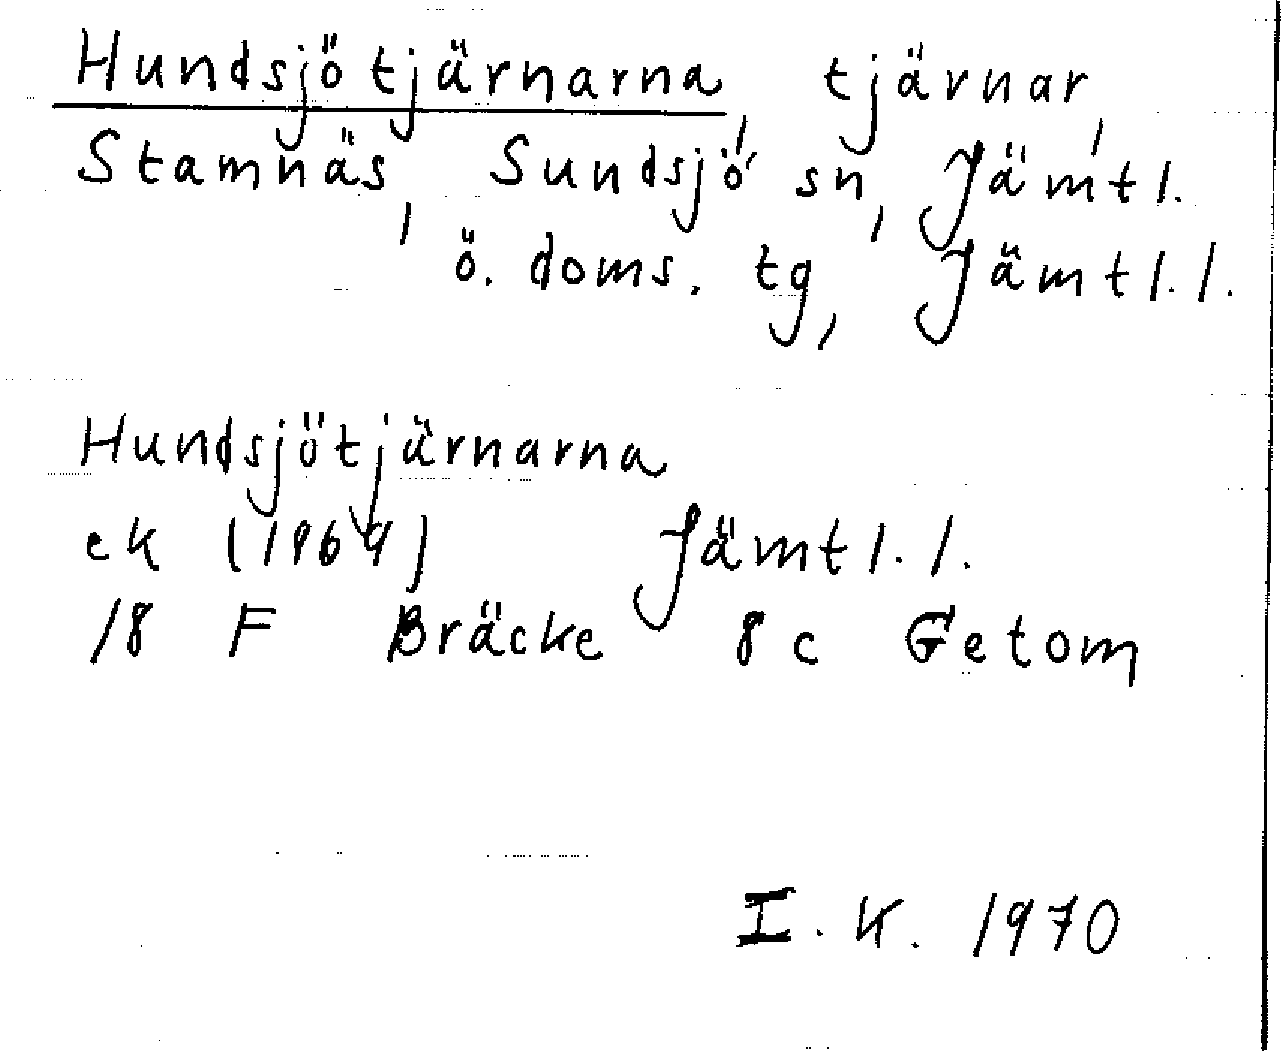 Hundsjötjärnarna, tjärnar,
Stamnäs, Sundsjö sn, Jämtl.
ö. doms. tg, Jämtl. l.
Hundsjötjärnarna
ek (1969) Jämtl. l.
18 F Bräcke 8 c Getom
I. K. 1970